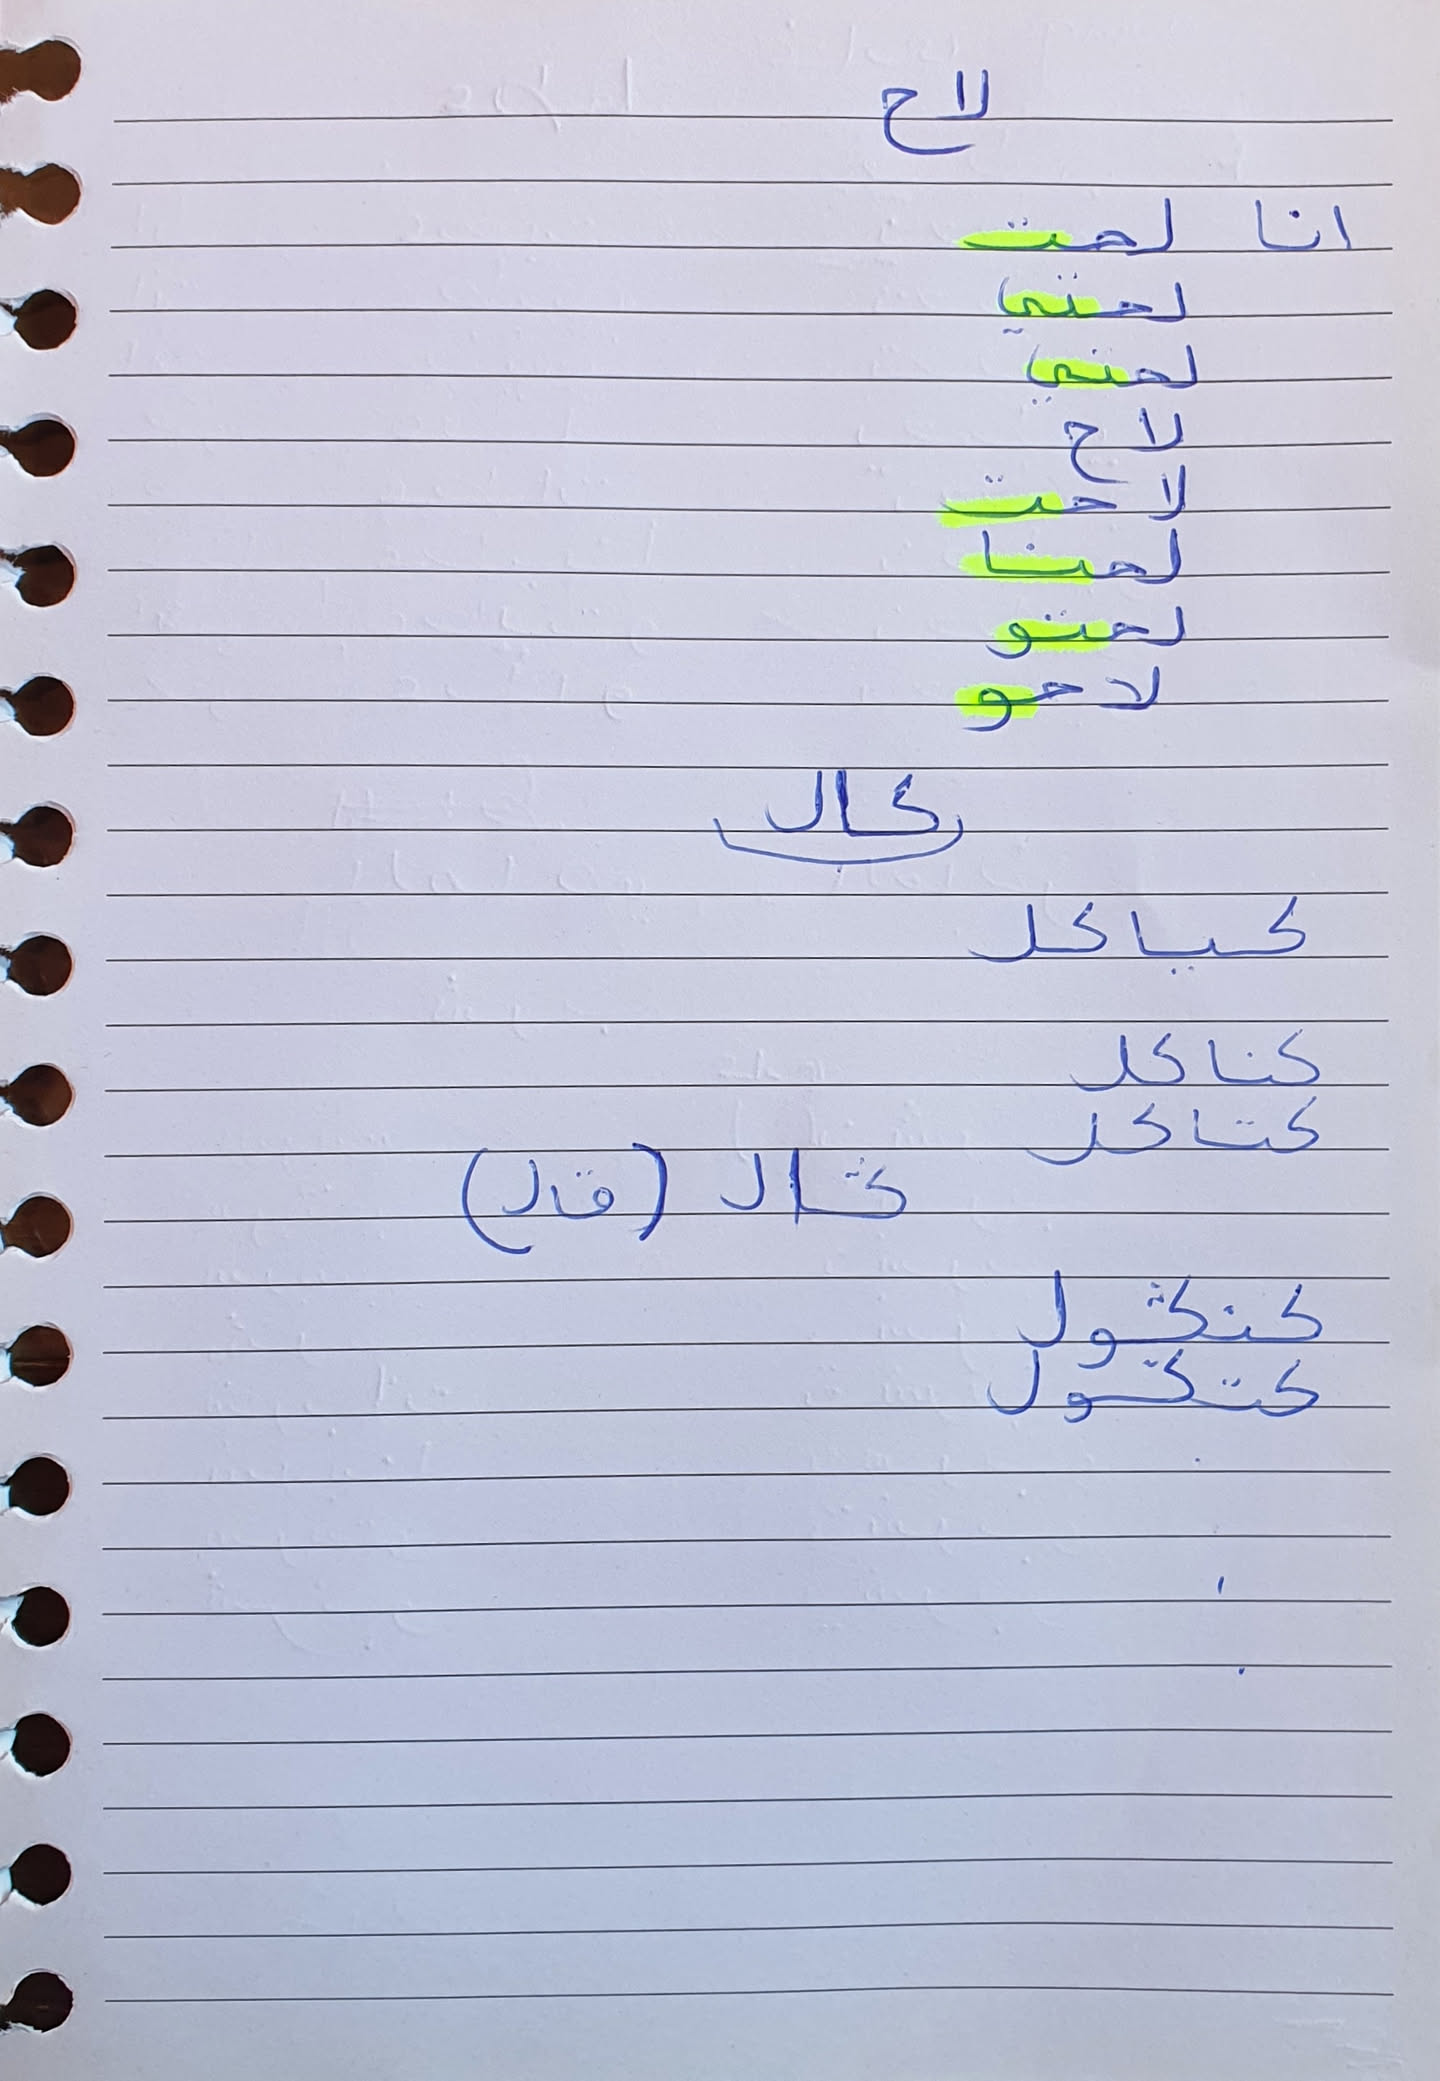 لاح
انا لحت
لحتي
لحتي
لاح
لاحت
لحنا
لحتو
لاحو
كال
كياكل
كناكل
كتاكل
ݣال (قال)
كنݣول
كتݣول